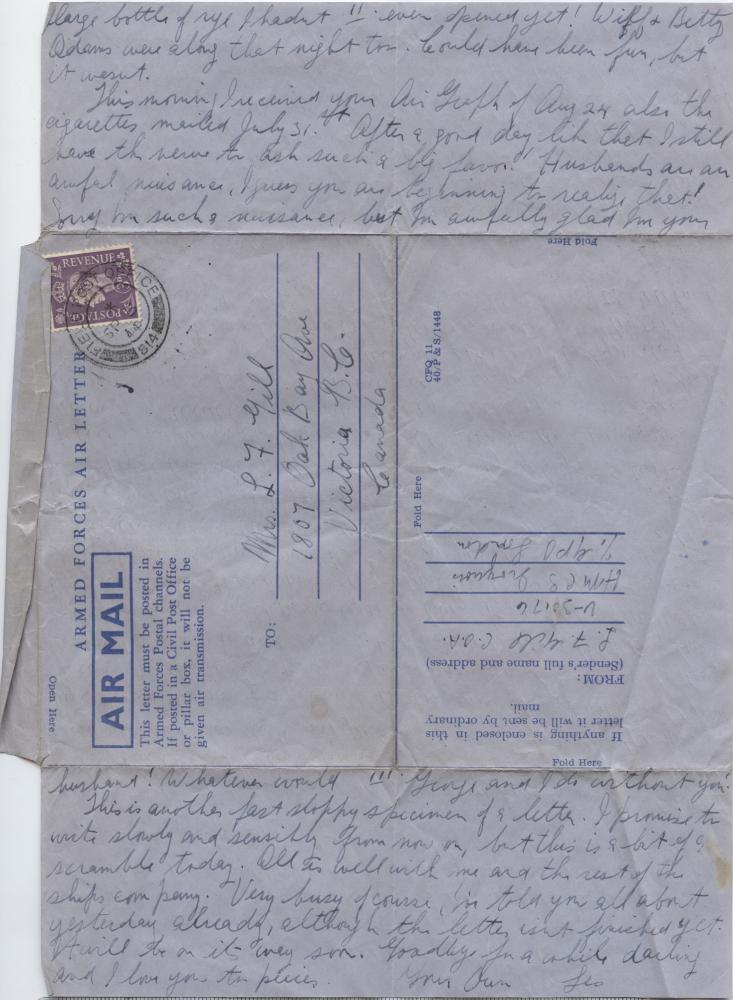 large bottle of rye I hadnt II even opened yet! Wiff & Betty
Adams were along that night too. Could have been fun, but
it wasnt.
This morning I received your Air Graph of Aug 24 also the
cigarettes mailed July 31.st After a good day like that I still
have the nerve to ask such a big favor. Husbands are an
awful nuisance, I guess you are beginning to realize that!
Sorry Im such a nuisance, but Im awfully glad Im your
REVENUE
POSTAGE
FIELD POST OFFICE
814
SP
ARMED FORCES AIR LETTER
AIR MAIL
This letter must be posted in
Armed Forces Postal channels.
If posted in a Civil Post Office
or pillar box, it will not be
given air transmission.
Open Here
TO:
Mrs. L. F. Gill
1807 Oak Bay Ave
Victoria B.C.
Canada
Fold Here
CPQ 11
40/P & S/1448
Fold Here
If anything is enclosed in this
letter it will be sent by ordinary
mail.
FROM:
(Sender's full name and address)
L. F. Gill C.O.A.
V-50176
HMCS Iroquois
℅ GPO London
Fold Here
husband! Whatever would III George and I do without you!
This is another fast sloppy specimen of a letter. I promise to
write slowly and sensibly from now on, but this is a bit of a
scramble today. All is well with me and the rest of the
ships company. Very busy of course, Ive told you all about
yesterday already, although the letter isnt finished yet.
It will be on its way soon. Goodbye for a while darling
and I love you to pieces. Your Own Les